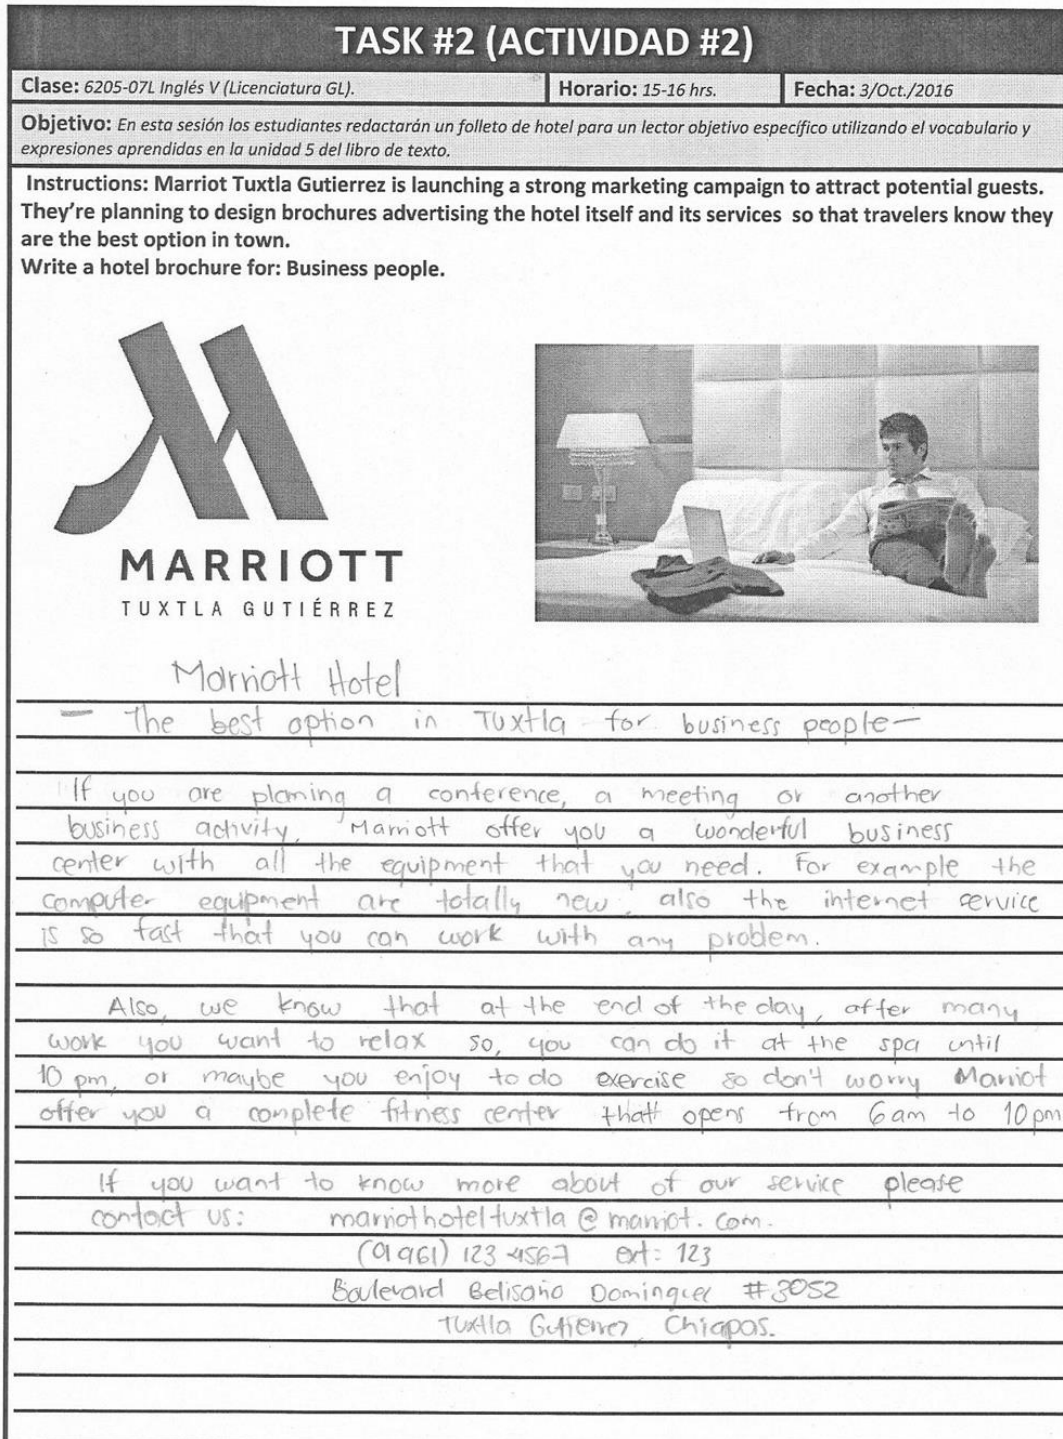 TASK #2 (ACTIVIDAD #2)
Clase: 6205-07L Inglés V (Licenciatura GL).
Horario: 15-16 hrs.
Fecha: 3/Oct./2016
Objetivo: En esta sesión los estudiantes redactarán un folleto de hotel para un lector objetivo específico utilizando el vocabulario y
expresiones aprendidas en la unidad 5 del libro de texto.
Instructions: Marriot Tuxtla Gutierrez is launching a strong marketing campaign to attract potential guests.
They're planning to design brochures advertising the hotel itself and its services so that travelers know they
are the best option in town.
Write a hotel brochure for: Business people.
MARRIOTT
TUXTLA GUTIÉRREZ
Marriott Hotel
- The best option in Tuxtla for business people-
If you are planing a conference, a meeting or another
business activity, Marriott offer you a wonderful business
center with all the equipment that you need. For example the
computer equipment are totally new, also the internet service
is so fast that you can work with any problem.
Also, we know that at the end of the day, after many
work you want to relax so, you can do it at the spa until
10 pm, or maybe you enjoy to do exercise so don't worry Marriot
offer you a complete fitness center that opens from 6am to 10pm
If you want to know more about of our service please
contact us: marriothoteltuxtla@marriot.com.
(01 961) 123-4567 ext: 123
Boulevard Belisario Dominguez #3052
Tuxtla Gutierrez, Chiapas.